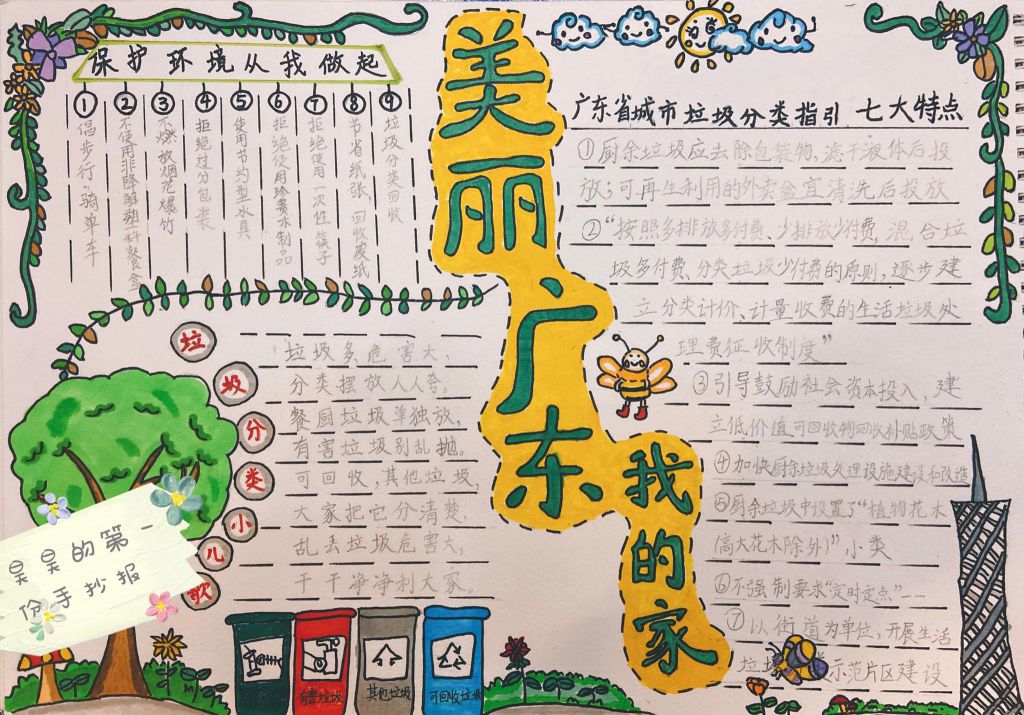 美丽广东
我的家
保护环境从我做起
①倡步行.骑单车
②不使用非降解塑料餐盒
③不燃放烟花爆竹
④拒绝过分包装
⑤使用节约型水具
⑥拒绝使用珍贵木制品
⑦拒绝使用一次性筷子
⑧节省纸张,回收废纸
⑨垃圾分类回收
垃圾分类小儿歌
垃圾多危害大,
分类摆放人人夸。
餐厨垃圾单独放,
有害垃圾别乱抛。
可回收,其他垃圾,
大家把它分清楚.
乱丢垃圾危害大,
干干净净利大家。
昊昊的第一
份手抄报
有害垃圾
其他垃圾
可回收垃圾
广东省城市垃圾分类指引 七大特点
①厨余垃圾应去除包装物,滤干液体后投
放;可再生利用的外卖盒宜清洗后投放
②“按照多排放多付费、少排放少付费,混合垃
圾多付费、分类垃圾少付费的原则,逐步建
立分类计价、计量收费的生活垃圾处
理费征收制度”
③引导鼓励社会资本投入,建
立低价值可回收物回收补贴政策
④加快厨余垃圾处理设施建设和改造
⑤厨余垃圾中设置了“植物花木
(高大花木除外)”小类
⑥不强制要求“定时定点”--
⑦以街道为单位,开展生活
垃 示范片区建设